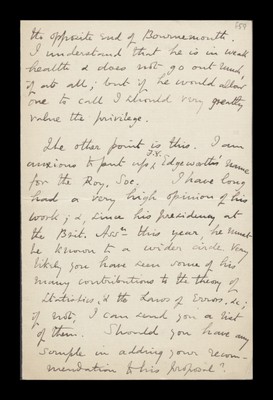 257
the opposite end of Bournemouth.
I understand that he is in weak
health & does not go out much,
if at all; but if he would allow
one to call I should very greatly
value the privilege.
The other point is this. I am
anxious to put up F. Y. Edgeworth's name
for the Roy. Soc. I have long
had a very high opinion of his
work; &, since his presidency at
the Brit. Assn this year, he must
be known to a wider circle. Very
likely you have seen some of his
many contributions to the theory of
Statistics, & the Laws of Error, &c;
if not, I can send you a list
of them. Should you have any
scruple in adding your recom-
mendation to his proposal?